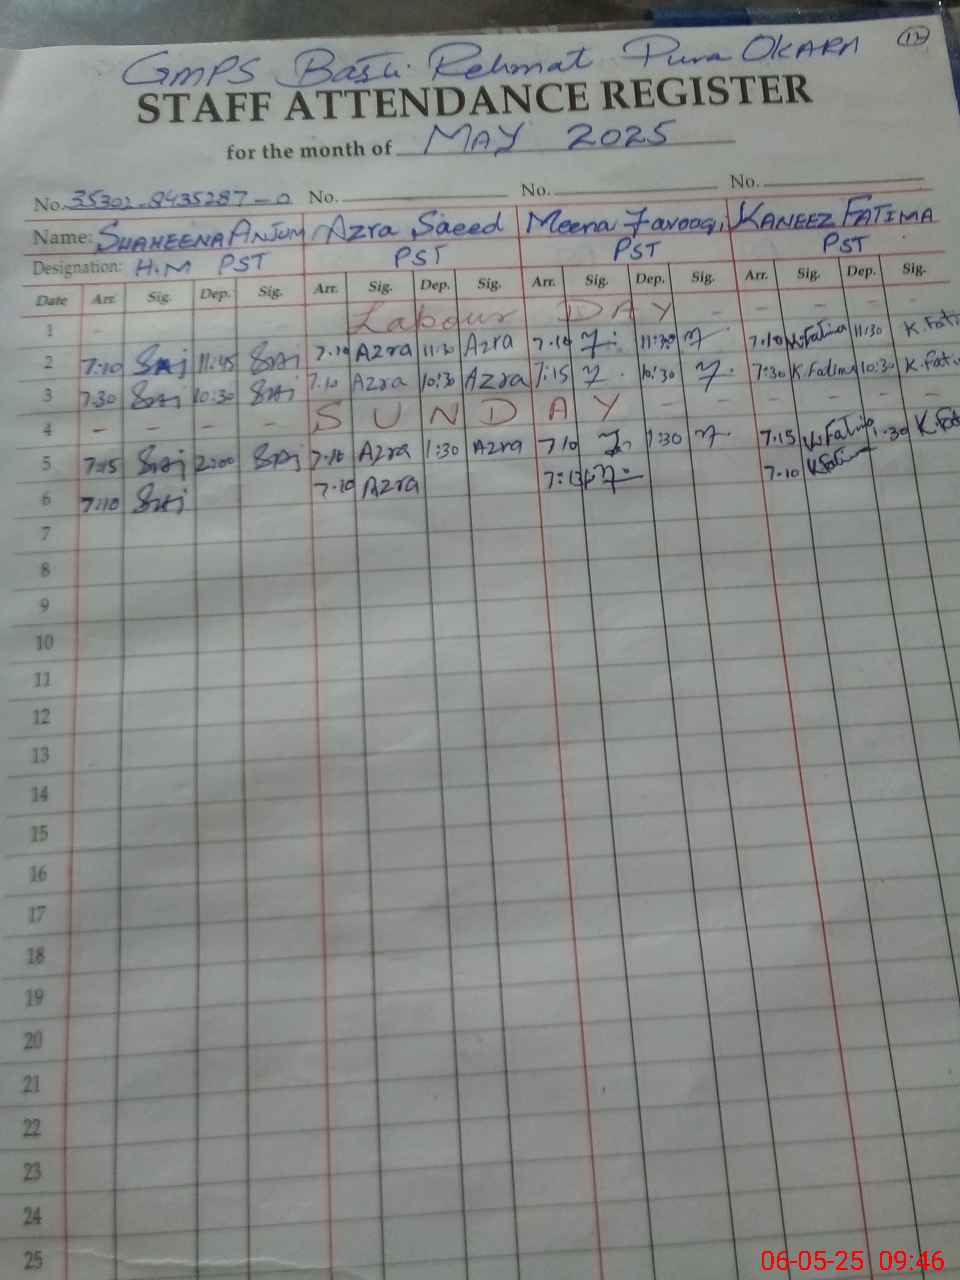 12
GMPS Basti Rehmat Pura OKARA
STAFF ATTENDANCE REGISTER
for the month of MAY 2025
No. 35302-8435287-0 No. No. No.
Name: SHAHEENA ANJUM Azra Saeed Meena Farooqi KANEEZ FATIMA
Designation: H.M PST PST PST PST
Date Arr. Sig. Dep. Sig. Arr. Sig. Dep. Sig. Arr. Sig. Dep. Sig. Arr. Sig. Dep. Sig.
1 - - - - Labour DAY - - - - - -
2 7:10 11:45 7.10 Azra 11:30 Azra 7.10 11:30 7:10 K.Fatima 11:30 K.Fati
3 7:30 10:30 7.10 Azra 10:30 Azra 7:15 10:30 7:30 K.Fatima 10:30 K.Fati
4 - - - - S U N D A Y - - - - - -
5 7:15 2:00 7.10 Azra 1:30 Azra 7.10 1:30 7.15 K.Fatima 1:30 K.Fat
6 7:10 7.10 Azra 7:15 7.10 K.Fatima
7
8
9
10
11
12
13
14
15
16
17
18
19
20
21
22
23
24
25
06-05-25 09:46